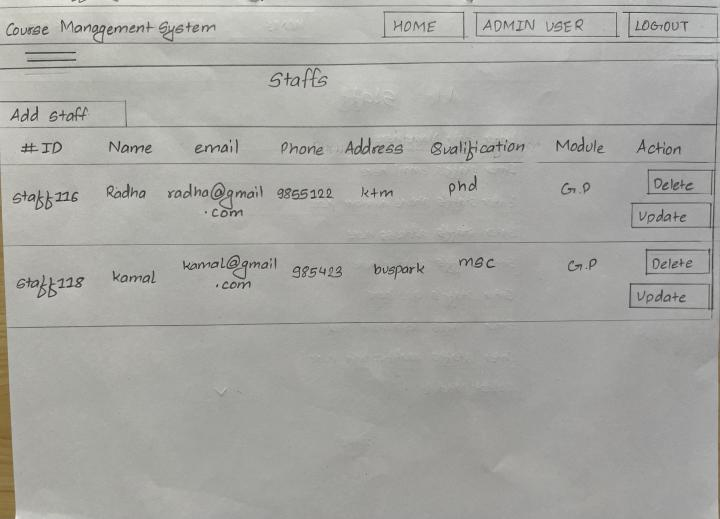 Course Management System HOME ADMIN USER LOGOUT
Staffs
Add staff
# ID Name email Phone Address Qualification Module Action
staff116 Radha radha@gmail 9855122 ktm phd G.P Delete
.com Update
staff118 kamal kamal@gmail 985423 buspark msc G.P Delete
.com Update